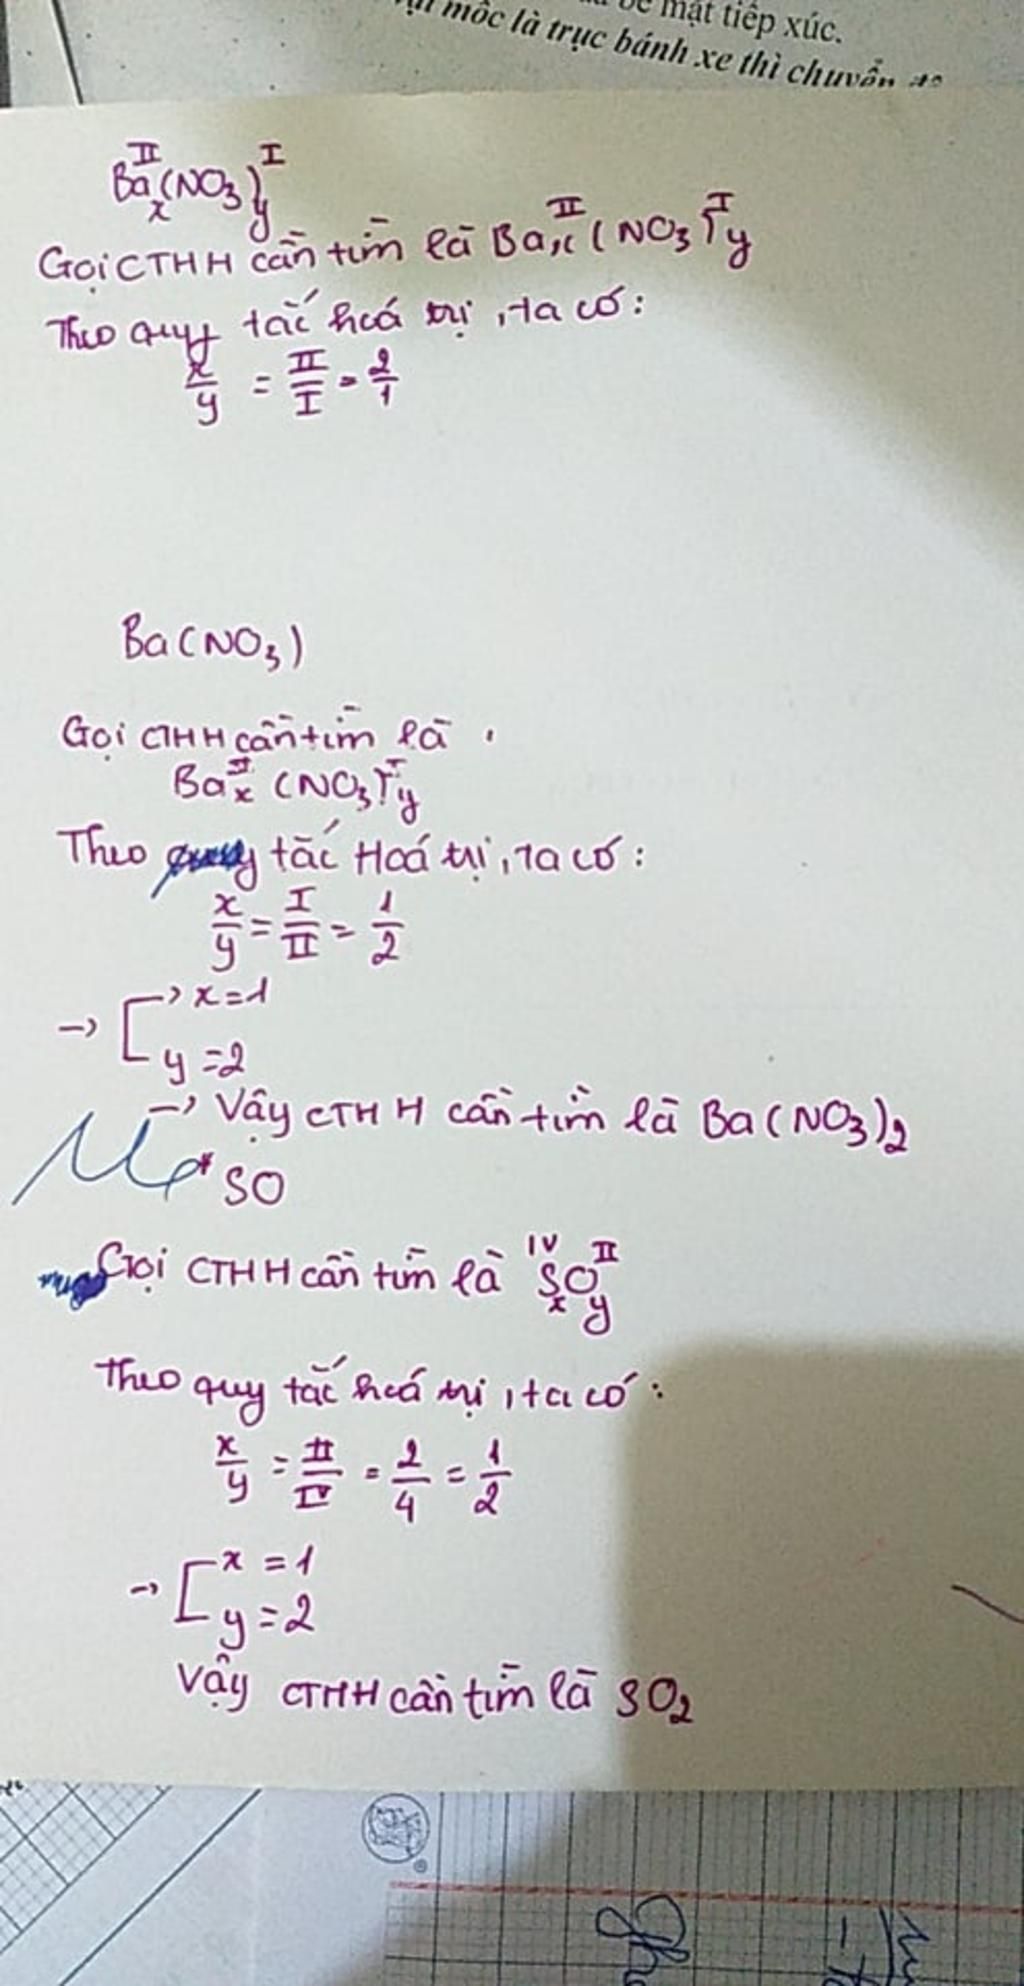 bề mặt tiếp xúc.
mốc là trục bánh xe thì chuyển
Ba x^II (NO3)y^I
Gọi CTHH cần tìm là Ba x^II (NO3)^I y
Theo quy tắc hoá trị, ta có:
x/y = II/I = 2/1
Ba(NO3)
Gọi CTHH cần tìm là
Ba^II x (NO3)^I y
Theo quy tắc Hoá trị, ta có:
x/y = I/II = 1/2
→ [ x = 1
y = 2
→ Vậy CTHH cần tìm là Ba(NO3)2
* SO
Gọi CTHH cần tìm là S^IV x O^II y
Theo quy tắc hoá trị, ta có:
x/y = II/IV = 2/4 = 1/2
→ [ x = 1
y = 2
Vậy CTHH cần tìm là SO2